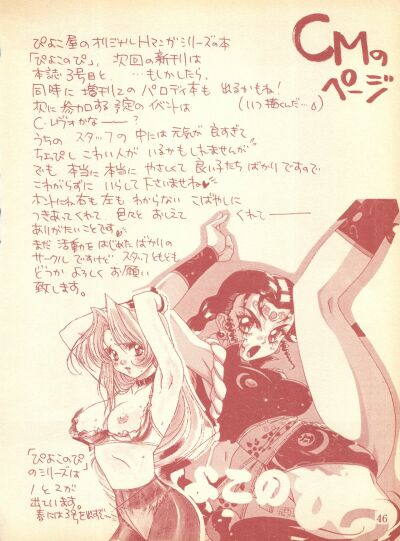 CMの
ページ
ぴよこ屋のオリジナルHマンガシリーズの本
「ぴよこのぴ」、次回の新刊は
本誌3号目と、…もしかしたら、
同時に増刊2のパロディ本も出るかもね!
次に参加する予定のイベントは (いつ描くんだ…
C・レヴォかな——?
うちの スタッフの 中には 元気が 良すぎて
ちょっぴし こわい人が いるかもしれませんが
でも 本当に 本当に やさしくて 良い子たち ばかり ですので
こわがらずに いらして 下さいませね♥
ホントにね 右も 左も わからない こばやしに
つきあってくれて、色々と おしえて くれて——
ありがたいことです。
まだ 活動を はじめたばかりの
サークル ですけど スタッフともども
どうか よろしく お願い
致します。
「ぴよこのぴ」
のシリーズは
1と2が
出ています。
春には3号をめざし…
よこの
46